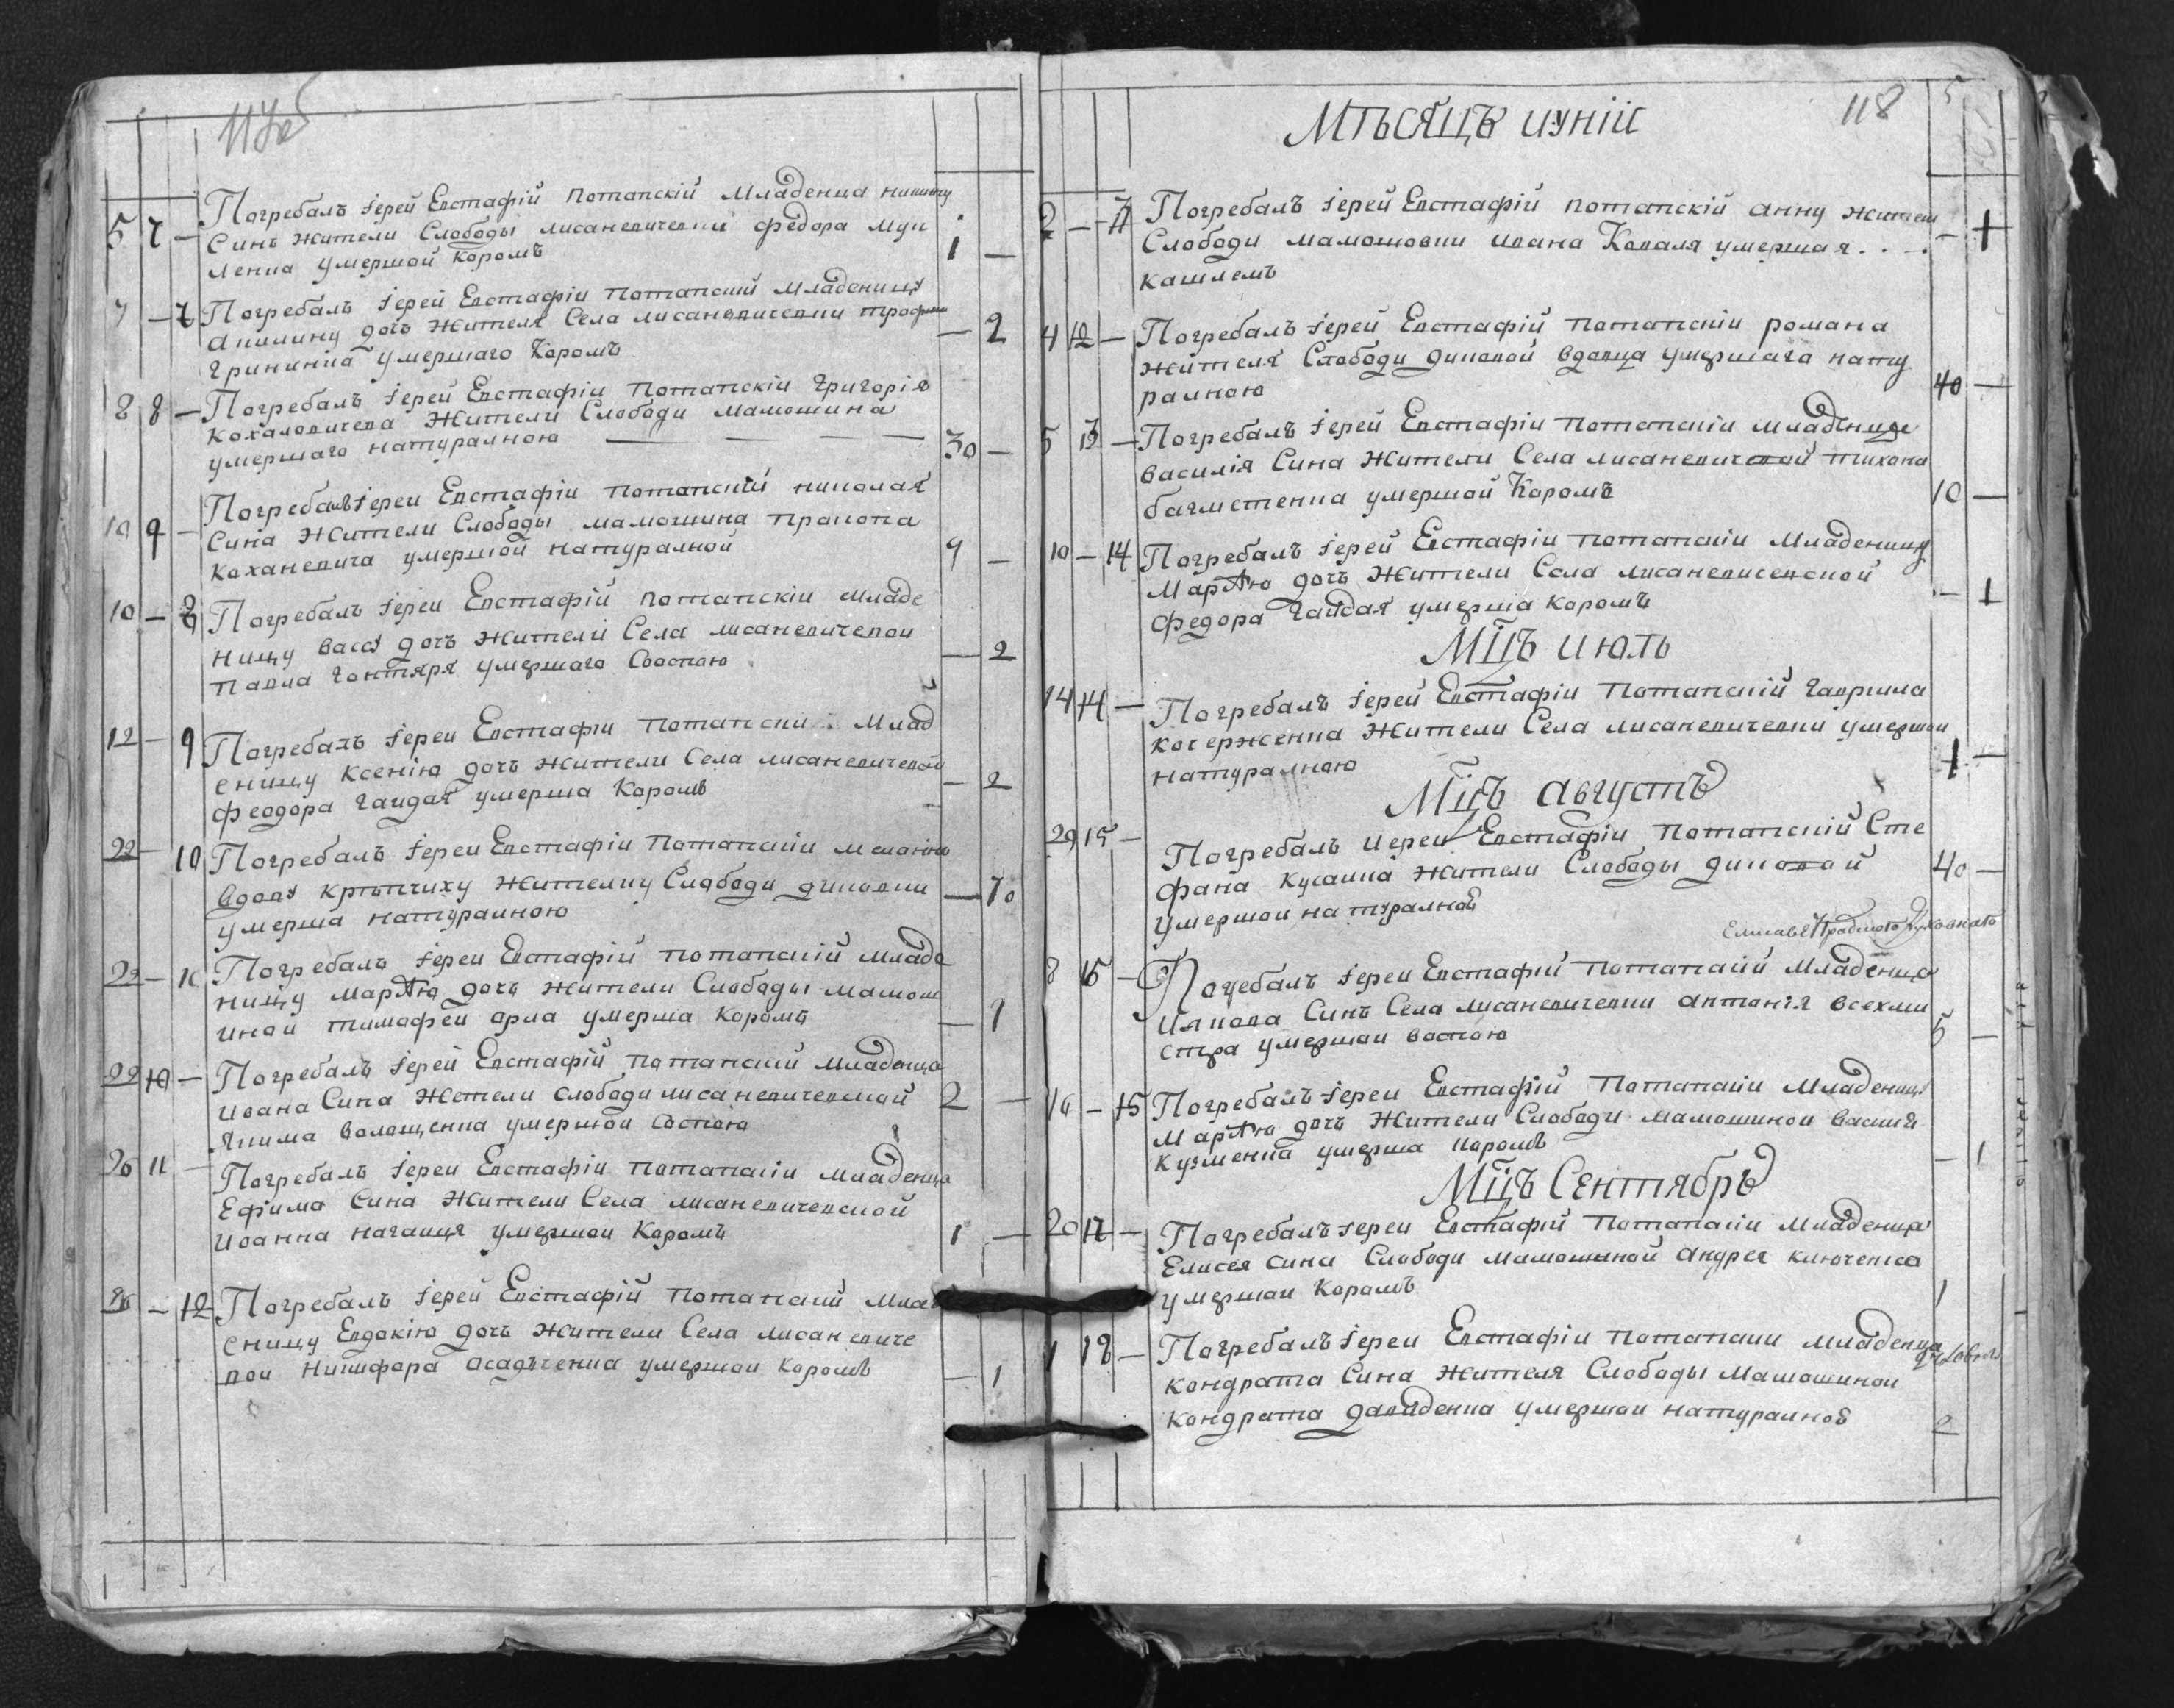 117об
5 7 — Погребалъ Іерей Евстафій Потапскій Младенца Никиту
Синъ Жители Слободы Лисаневичевки Федора
ленка умершой Коромъ 1 —
7 — 7 Погребалъ Іерей Евстафіи Потапский Младеницу
Акилину дочъ Жителя Села Лисаневичевки
умершаго Коромъ — 2
8 8 — Погребалъ Іерей Евстафіи Потапскіи Григорія
Кохановичева Жители Слободи Мамошина
умершаго натуралною 30 —
10 9 — Погребалъ Іереи Евстафіи Потапский Николая
Сина Жители Слободы Мамошина Прокопа
Коханевича умершой натуралной 9 —
10 — 8 Погребалъ Іереи Евстафій Потапскіи Младе
ницу Вассу дочъ Жителй Села Лисаневичевкои
Павла Гонтяря умершаго Воспою — 2
12 — 9 Погребалъ Іереи Евстафіи Потапски Млад
еницу Ксенію дочъ Жители Села Лисаневичевой
Феодора Гайдая умерша Коромъ — 2
22 — 10 Погребалъ Іереи Евстафіи Потапскіи Меланію
вдову Жителку Слободи Диковки
умерша натуралною — 70
22 — 10 Погребалъ Іереи Евстафій Потапскій Младе
ницу Марѳю дочъ Жители Слободы Мамош
иной Тимофеи Орла умерша Коромъ — 1
22 10 — Погребалъ Іерей Евстафій Потапский Младенца
Ивана Сина Жетели Слободи Лисаневичевской
Якима Волощенка умершой Воспою 2 —
26 11 — Погребалъ Іереи Евстафіи Потапскіи Младенца
Ефима Сина Жители Села Лисаневичевской
Иоанна умершои Коромъ 1 —
26 — 12 Погребалъ Іерей Евстафій Потапский Млад
еницу Евдокію дочъ Жители Села Лисаневиче
вои Никифора Осадченка умершои Коромъ — 1
118
Мѣсяцъ иуніи
2 — 11 Погребалъ Іерей Евстафій Потапскій Анну Жители
Слободи Мамошовки Ивана Коваля умершая — 1
кашлемъ
4 12 — Погребалъ Іерей Евстафій Потапскіи Романа
Жителя Слободи Диковой вдовца умершаго нату
ралною 40 —
5 13 — Погребалъ Іерей Евстафіи Потапскіи Младенца
Василія Сина Жители Села Лисаневичевой Тихона
умершой Коромъ 10 —
10 — 14 Погребалъ Іерей Евстафіи Потапскіи Младеницу
Марѳю дочъ Жители Села Лисаневисенской
Федора Гайдая умерша Коромъ — 1
Мцъ Июль
14 14 — Погребалъ Іерей Евстафіи Потапскій Гаврила
Кочерженка Жители Села Лисаневичевки умершои
натуралною 1 —
Мцъ Августъ
29 15 — Погребалъ Иереи Евстафіи Потапскій Сте
фана Жители Слободы Диковой 40 —
умершои натуралной
8 16 — Погребалъ Іереи Евстафій Потапскій Младенца
Иякова Синъ Села Лисаневичевки Антонія
умершаи воспою 5 —
10 — 15 Погребалъ Іереи Евстафій Потапскіи Младеницу
Марѳю дочъ Жители Слободи Мамошинои Василя
Кузменка умерша Коромъ — 1
Мцъ Сентябръ
20 17 — Погребалъ Іереи Евстафій Потапскіи Младенца
Елисея Сина Слободи Мамошиной Андрея Ключепка
умершаи Коромъ 1
1 18 — Погребалъ Іереи Евстафіи Потапски Младенца
Кондрата Сина Жителя Слободы Мамошинои
Кондрата Давиденка умершаи натуралной 2